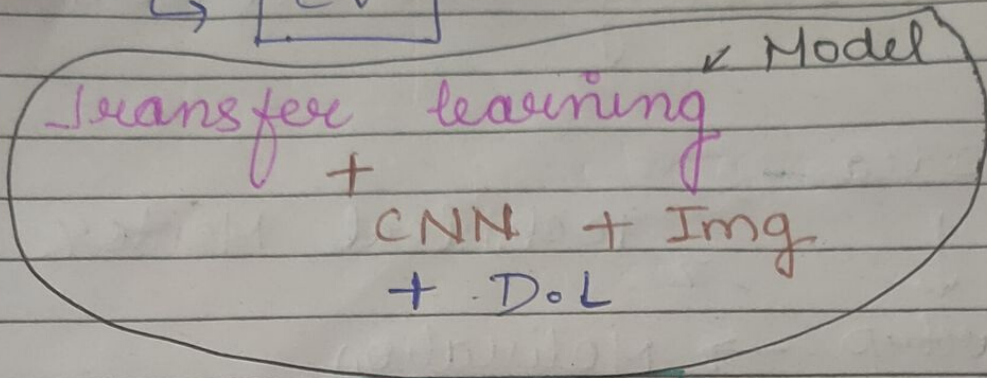 ↙ Model
Transfer learning
+
CNN + Img
+ D.L